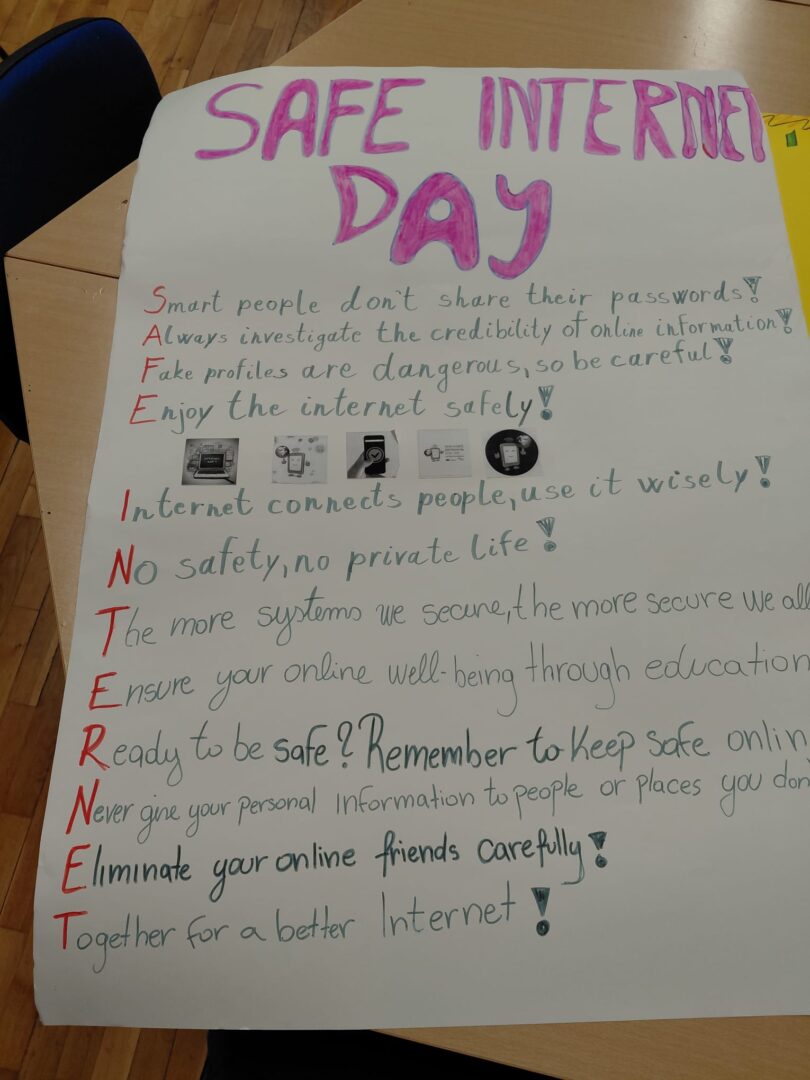 SAFE INTERNET
DAY
Smart people don't share their passwords!
Always investigate the credibility of online information!
Fake profiles are dangerous, so be careful!
Enjoy the internet safely!
Internet connects people, use it wisely!
No safety, no private life!
The more systems we secure, the more secure we all
Ensure your online well-being through education
Ready to be safe? Remember to keep safe onlin
Never give your personal information to people or places you don'
Eliminate your online friends carefully!
Together for a better Internet!